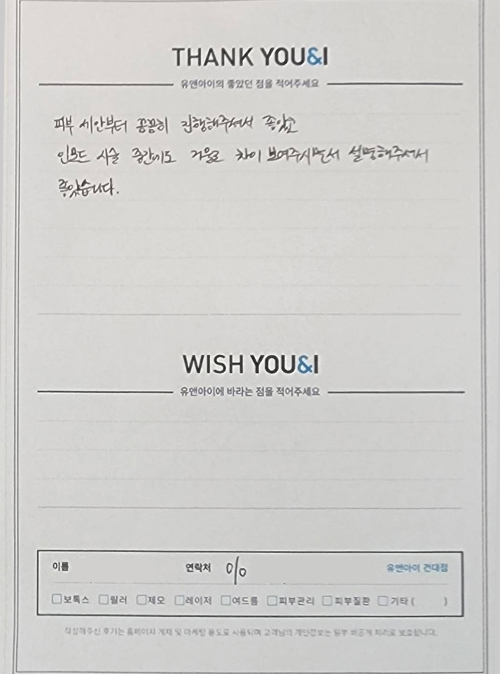 THANK YOU&I
유앤아이의 좋았던 점을 적어주세요
피부 세안부터 꼼꼼히 진행해주셔서 좋았고
인모드 시술 중간에도 거울로 차이 보여주시면서 설명해주셔서
좋았습니다.
WISH YOU&I
유앤아이에 바라는 점을 적어주세요
이름 연락처 유앤아이 건대점
보톡스 필러 제모 레이저 여드름 피부관리 피부질환 기타 ( )
작성해주신 후기는 홈페이지 게재 및 마케팅 용도로 사용되며 고객님의 개인정보는 일부 비공개 처리로 보호됩니다.